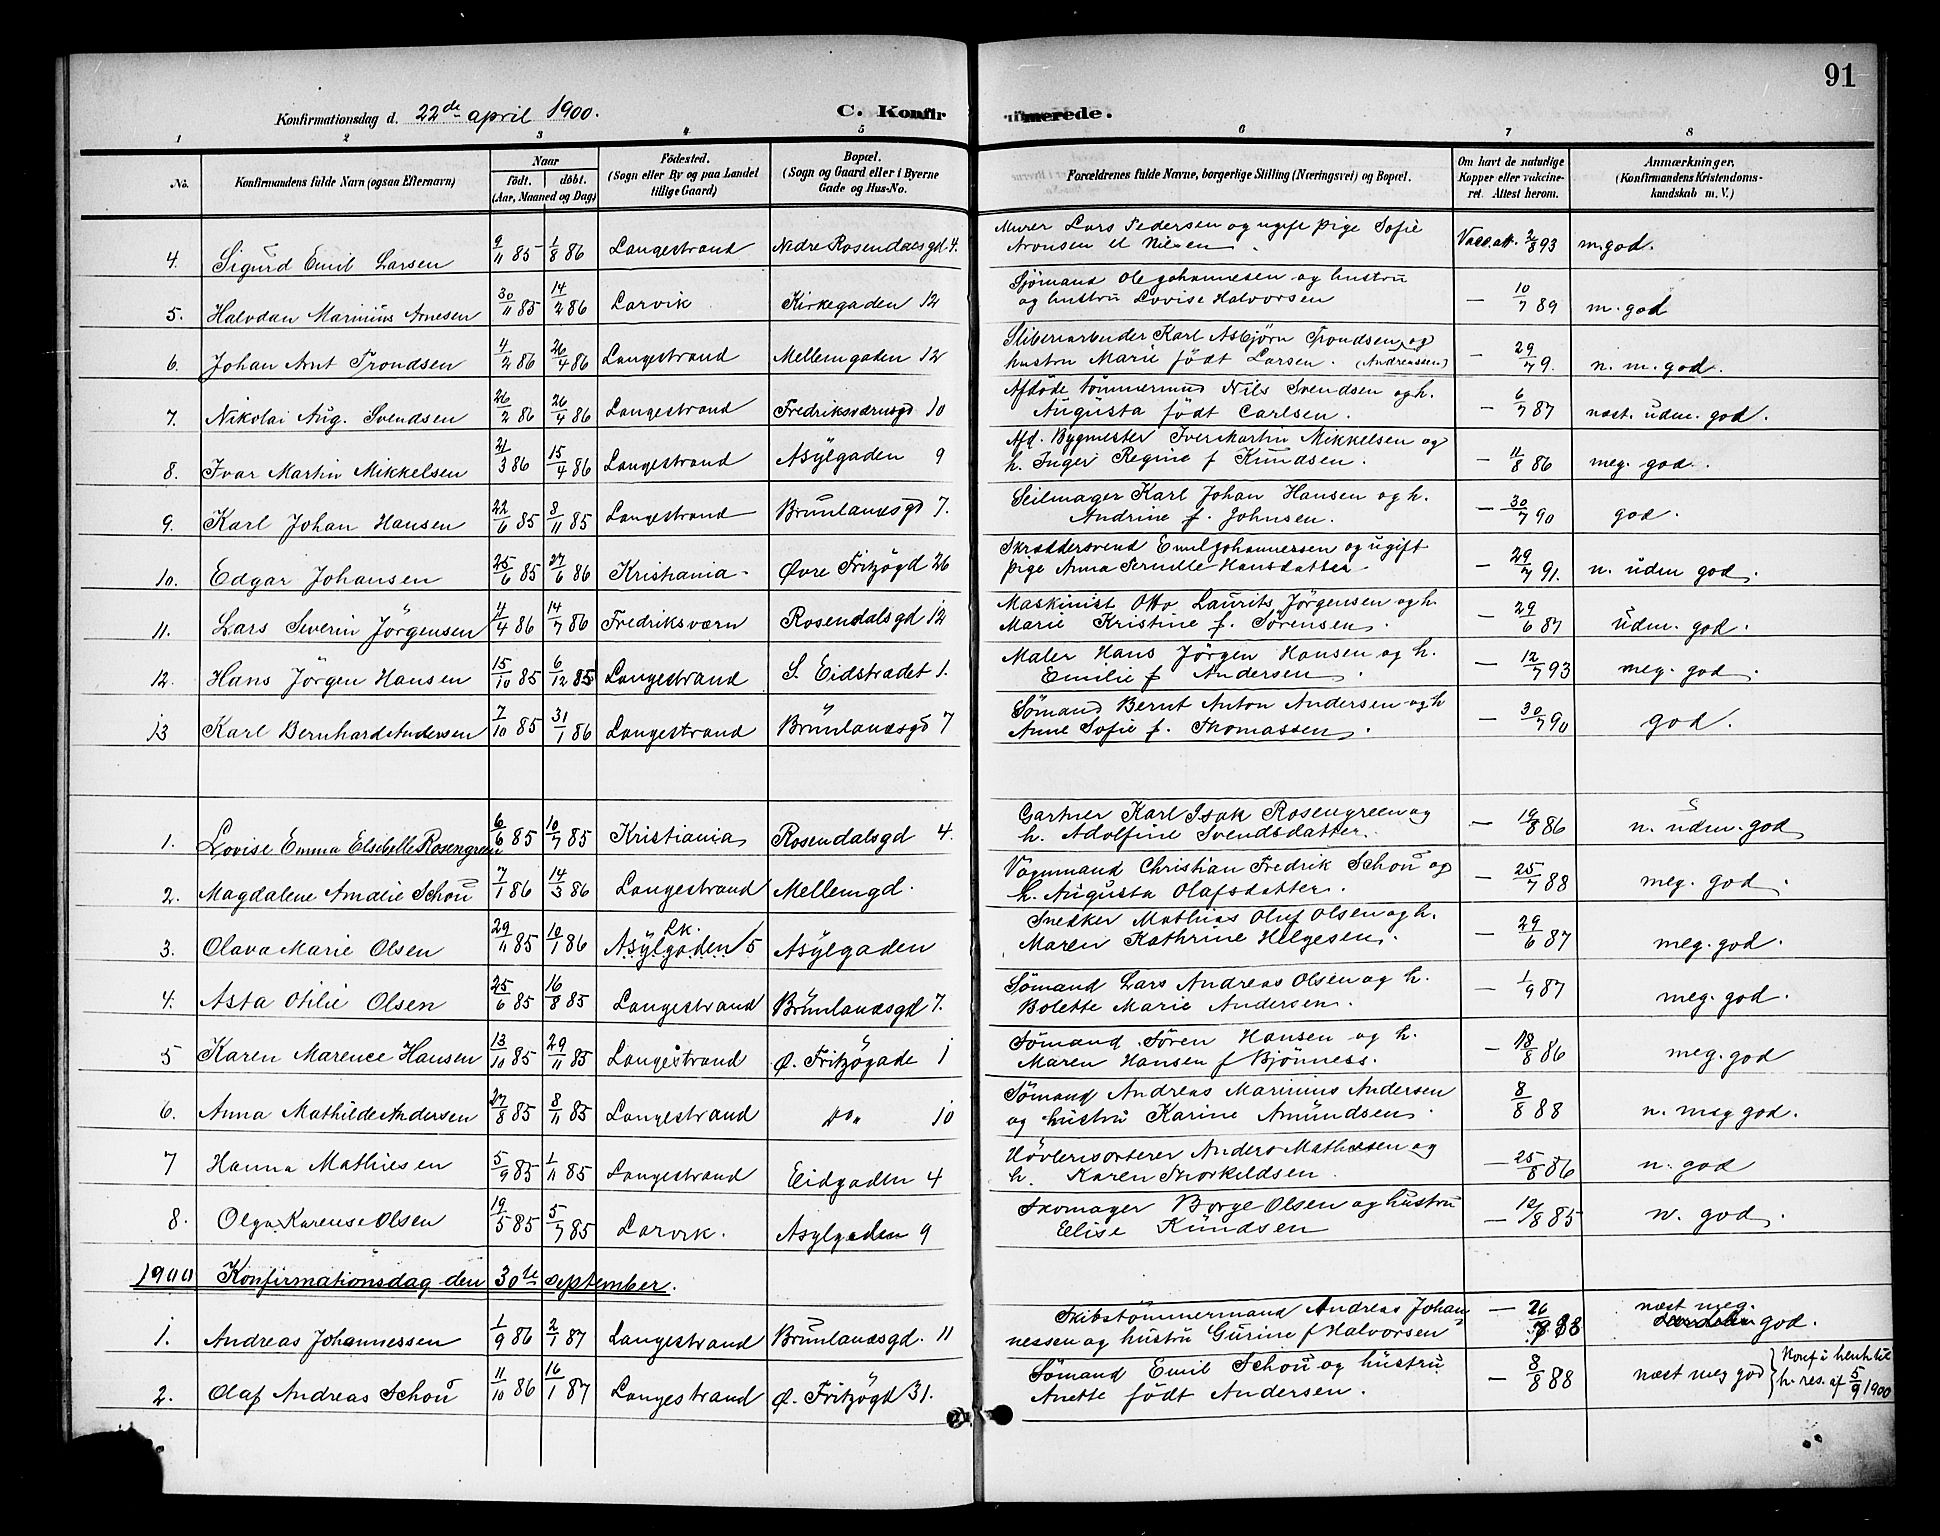 91
Konfirmationsdag d. 22de april 1900. C. Konfirmerede.
1 2 3 4 5 6 7 8
No. Konfirmandens fulde Navn (ogsaa Efternavn) Naar født. døbt. (Aar, Maaned og Dag) Fødested. (Sogn eller By og paa Landet tillige Gaard) Bopæl. (Sogn og Gaard eller i Byerne Gade og Hus-No. Forældrenes fulde Navne, borgerlige Stilling (Næringsvei) og Bopæl. Om havt de naturlige Kopper eller vakcineret. Attest herom. Anmærkninger, (Konfirmandens Kristendomskundskab m. V.)
4. Sigurd Emil Larsen 9/11 85 1/8 86 Langestrand Nedre Rosendalsgd 4. Murer Lars Pedersen og ugift pige Sofie
Aronsen el Nilsen Vacc.att. 2/8 93 m. god.
5. Halvdan Marinius Arnesen 30/11 85 14/2 86 Larvik Kirkegaden 12 Sjømand Ole Johannesen og hustru
og hustru Lovise Halvorsen — 10/7 89 m. god
6. Johan Arnt Trondsen 4/2 86 26/4 86 Langestrand Mellemgaden 12 Sliberiarbeider Karl Asbjørn Trondsen og
hustru Marie født Larsen. (Andreassen) — 29/7 9. n. m. god.
7. Nikolai Aug. Svendsen 26/2 86 26/4 86 Langestrand Fredriksværnsgd 10 Afdøde tømmermand Nils Svendsen og h.
Augusta født Carlsen. — 6/7 87 næst. udm. god.
8. Ivar Martin Mikkelsen 21/3 86 15/4 86 Langestrand Asylgaden 9 Afd. Bygmester Iver Martin Mikkelsen og
h. Inger Regine f Knudsen. — 11/8 86 meg. god.
9. Karl Johan Hansen 22/6 85 8/11 85 Langestrand Brunlanæsgd 7. Seilmager Karl Johan Hansen og h.
Andrine f. Johnsen. — 30/7 90 god.
10. Edgar Johansen 25/6 85 27/6 86 Kristiania Øvre Fritzøgd 26 Skræddersvend Emil Johannessen og ugift
pige Anna Pernille Hansdatter — 29/7 91. n. udm god.
11. Lars Severin Jörgensen 4/4 86 14/7 86 Fredriksværn Rosendalsgd 12 Maskinist Otto Laurits Jörgensen og h.
Marie Kristine f. Sörensen. — 29/6 87 udm. god.
12. Hans Jörgen Hansen 15/10 85 6/12 85 Langestrand S. Eidstrædet 1. Maler Hans Jörgen Hansen og h.
Emilie f Andersen. — 12/7 93 meg. god.
13 Karl Bernhard Andersen 7/10 85 31/1 86 Langestrand Brunlanæsgd 7 Sömand Bernt Anton Andersen og h
Anne Sofie f. Thomassen. — 30/7 90 god.
1. Lovise Emma Elsebelle Rosengreen 6/6 85 10/7 85 Kristiania Rosendalsgd 4. Gartner Karl Isak Rosengreen og
h. Adolfine Svendsdatter. — 19/8 86 n. udm. god
2. Magdalene Amalie Schou 7/1 86 14/3 86 Langestrand Mellemgd. Vognmand Christian Fredrik Schou og
h. Augusta Olafsdatter. — 25/7 88 meg. god.
3. Olava Marie Olsen 29/11 85 10/1 86 Lk. Asylgaden 5 Asylgaden Snedker Mathias Oluf Olsen og h.
Maren Kathrine Helgesen. — 29/6 87 meg. god.
4. Asta Otilie Olsen 25/6 85 16/8 85 Langestrand Brunlanæsgd 7. Sömand Lars Andreas Olsen og h.
Bolette Marie Andersen. — 1/9 87 meg. god.
5 Karen Marence Hansen 13/10 85 29/11 85 Langestrand Ø. Fritzøgade 1 Sömand Sören Hansen og h.
Maren Hansen f Bjönness. — 18/8 86 meg. god
6. Anna Mathilde Andersen 27/8 85 8/11 85 Langestrand "o" 10 Sömand Andreas Marinius Andersen
og hustru Karine Amundsen. 8/8 88 n. meg god.
7 Hanna Mathiesen 5/9 85 1/11 85 Langestrand Eidgaden 4 Høvlerisorterer Anders Mathiesen og
h. Karen Thorkildsen. — 25/8 86 n. god
8. Olga Karense Olsen 19/5 85 5/7 85 Larvik. Asylgaden 9 Skomager Borge Olsen og hustru
Elise Knudsen — 12/8 85 n. god.
1900 Konfirmationsdag den 30te september.
1. Andreas Johannessen 1/9 86 2/1 87 Langestrand Brunlanæsgd. 11 Skibstömmermand Andreas Johan
nessen og hustru Gurine f Halvorsen — 26/7 88 næst meg. god.
2. Olaf Andreas Schou 11/10 86 16/1 87 Langestrand Ø. Fritzøgd 31. Sömand Emil Schou og hustru
Anette født Andersen. — 8/8 88 næst meg god Konf i henh til
h. res. af 5/9 1900